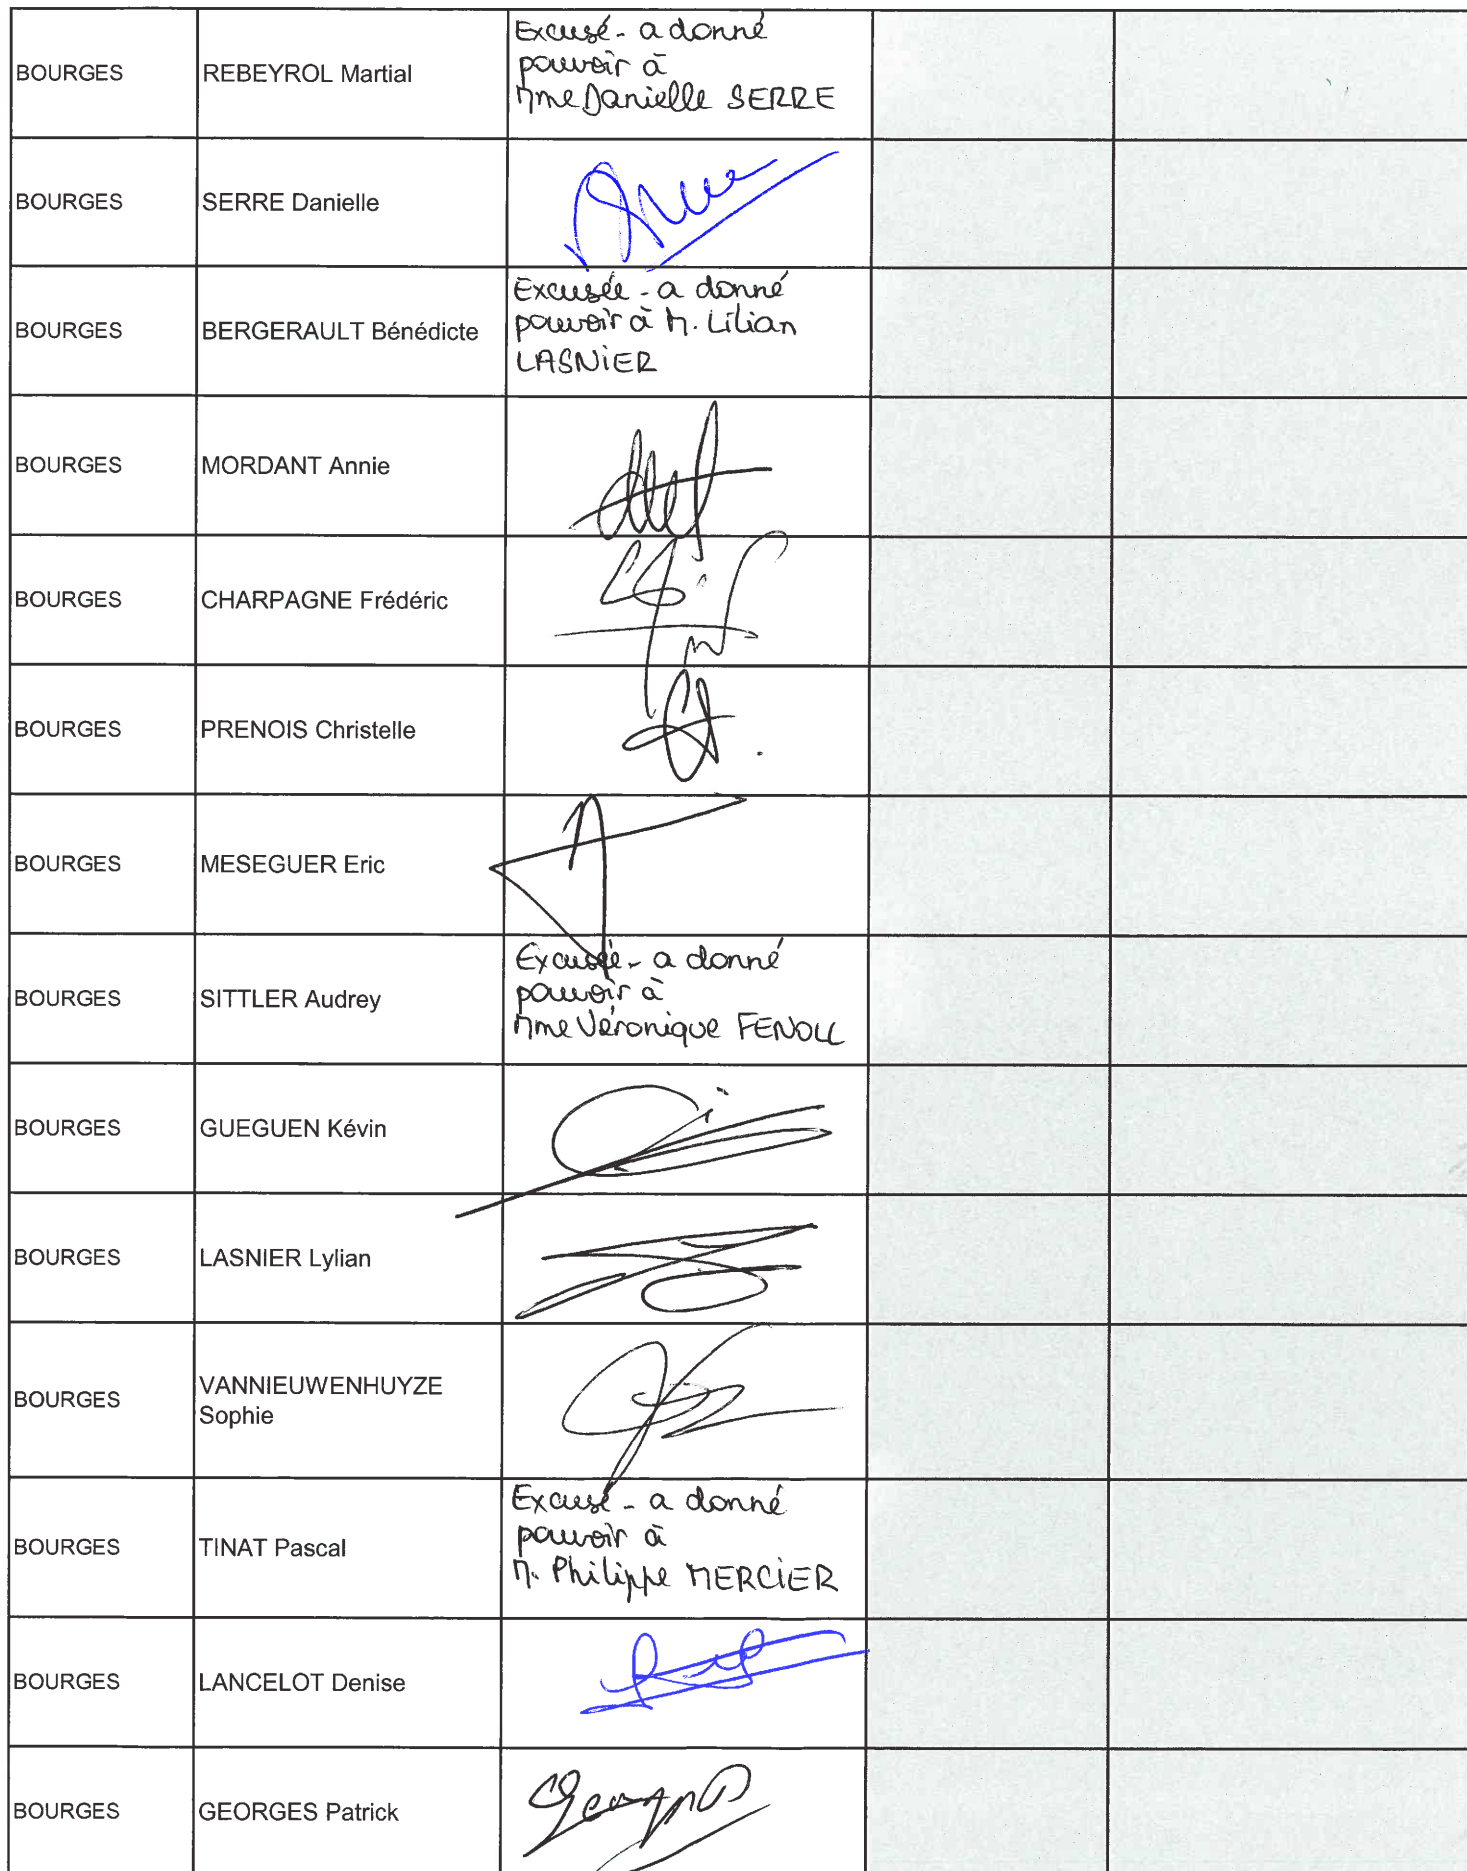 BOURGES REBEYROL Martial Excusé - a donné
pouvoir à
Mme Danielle SERRE
BOURGES SERRE Danielle
BOURGES BERGERAULT Bénédicte Excusée - a donné
pouvoir à M. Lilian
LASNIER
BOURGES MORDANT Annie
BOURGES CHARPAGNE Frédéric
BOURGES PRENOIS Christelle
BOURGES MESEGUER Eric
BOURGES SITTLER Audrey Excusée - a donné
pouvoir à
Mme Véronique FENOLL
BOURGES GUEGUEN Kévin
BOURGES LASNIER Lylian
BOURGES VANNIEUWENHUYZE
Sophie
BOURGES TINAT Pascal Excusé - a donné
pouvoir à
M. Philippe MERCIER
BOURGES LANCELOT Denise
BOURGES GEORGES Patrick